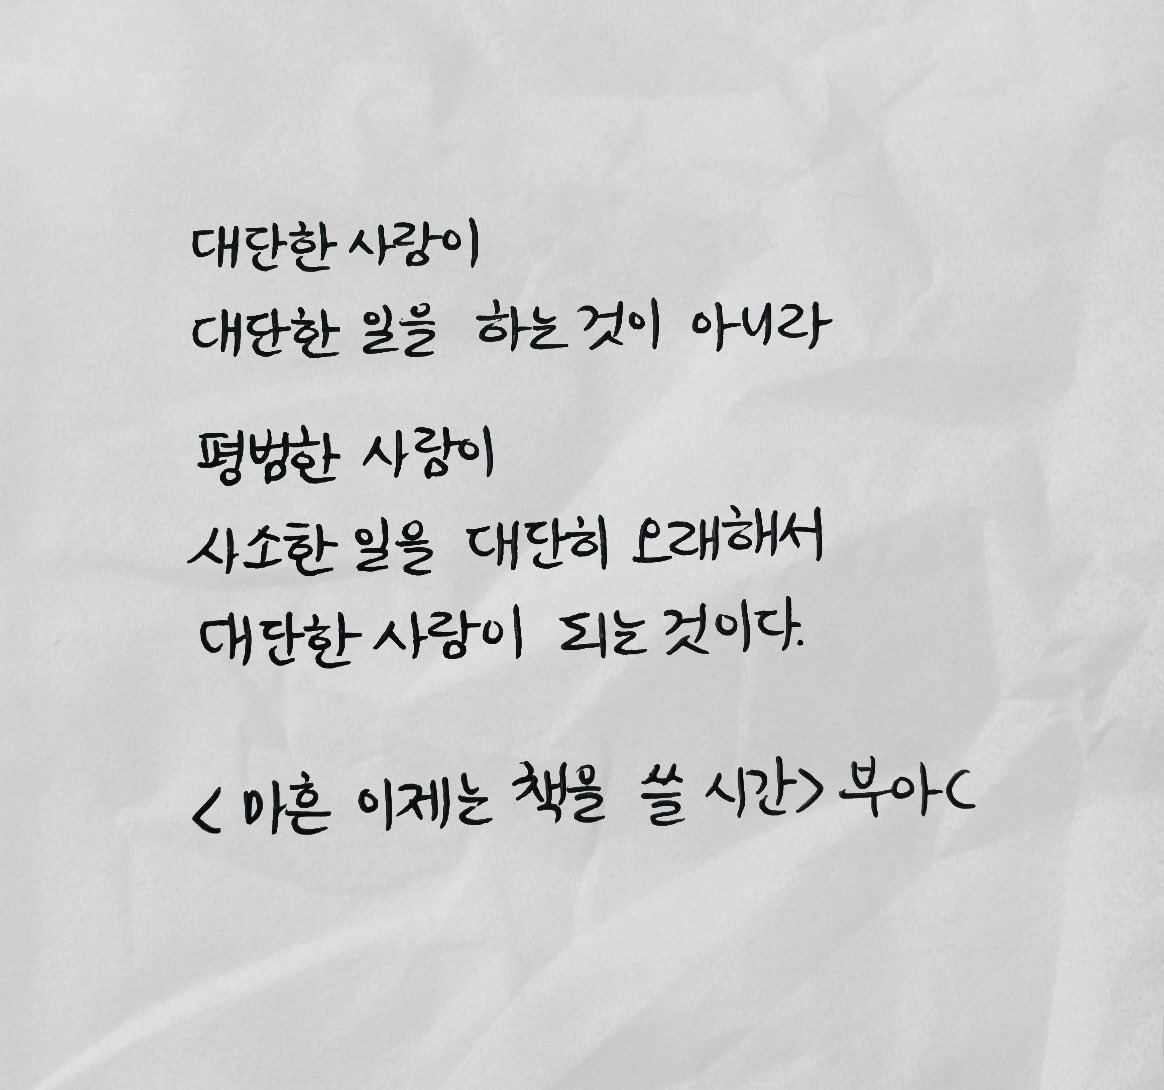 대단한 사람이
대단한 일을 하는 것이 아니라
평범한 사람이
사소한 일을 대단히 오래해서
대단한 사람이 되는 것이다.
<마흔 이제는 책을 쓸 시간> 부아C